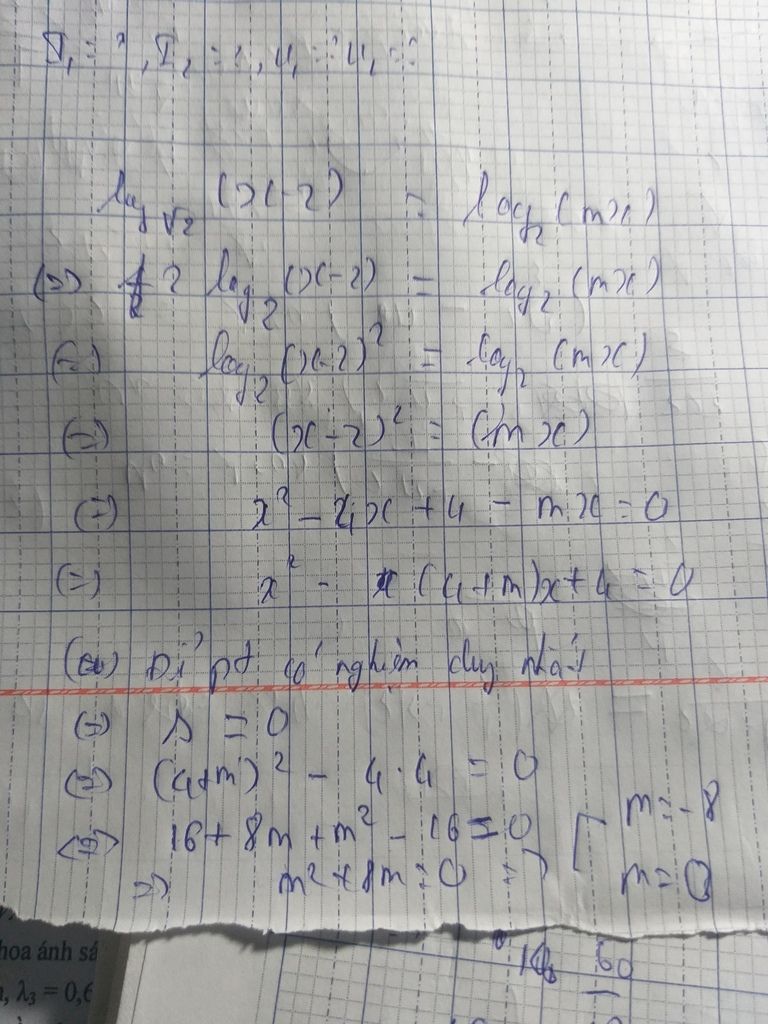 I₁ = ?, I₂ = ?, U₁ = ? U₁ = ?
log_√2 (x-2) = log₂(mx)
(=) 2 log₂(x-2) = log₂(mx)
(=) log₂(x-2)² = log₂(mx)
(=) (x-2)² = (mx)
(=) x² - 4x + 4 - mx = 0
(=) x² - (4+m)x + 4 = 0
Để pt có nghiệm duy nhất
(=) Δ = 0
(=) (4+m)² - 4.4 = 0
<=> 16 + 8m + m² - 16 = 0
=> m² + 8m = 0 => [ m = -8
m = 0
hoa ánh sá
, λ₃ = 0,6
60